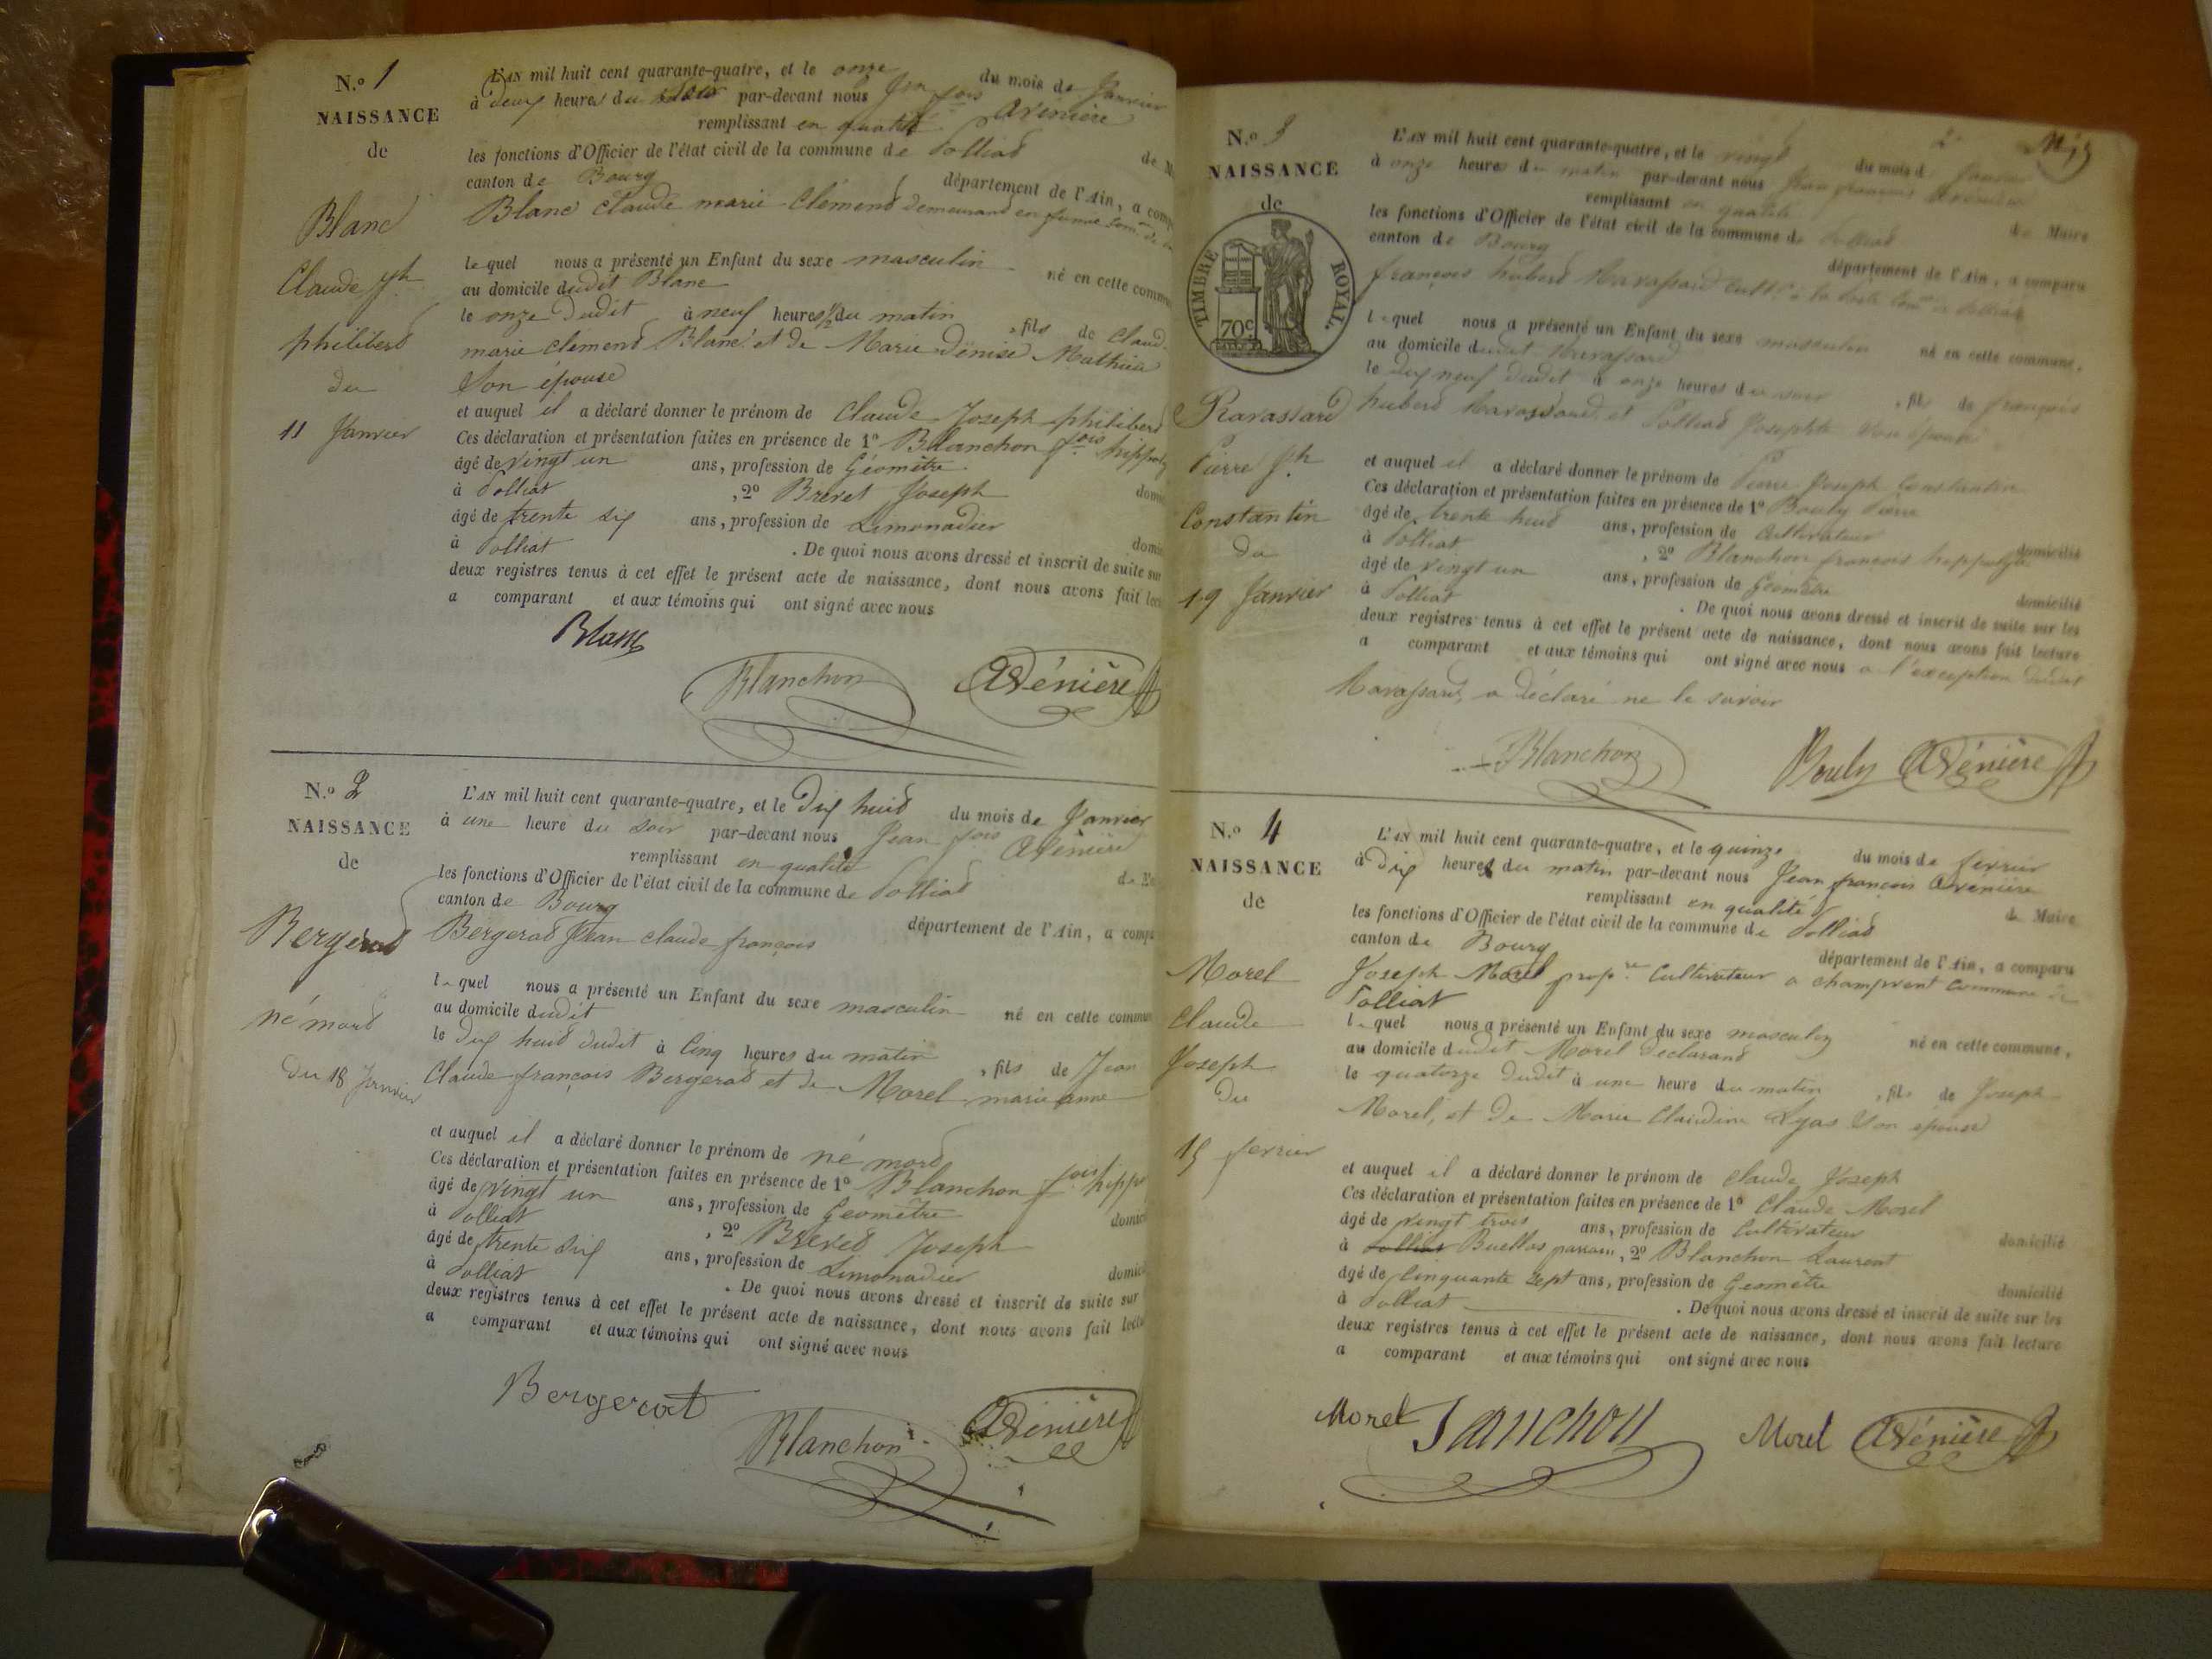 N.o 1
NAISSANCE
de
Blanc
Claude Jh
philibert
du
11 Janvier
L'AN mil huit cent quarante-quatre, et le onze du mois de Janvier
à Deux heures du soir par-devant nous Jean fois Avénière
remplissant en qualité de M
les fonctions d'Officier de l'état civil de la commune de Polliat
canton de Bourg département de l'Ain, a comp
Blanc Claude marie Clément demeurant en
lequel nous a présenté un Enfant du sexe masculin né en cette commu
au domicile dudit Blanc
le onze dudit à neuf heures 1/2 du matin , fils de Claude
marie clement Blanc et de Marie Denise Mathieu
Son épouse
et auquel il a déclaré donner le prénom de Claude Joseph philibert
Ces déclaration et présentation faites en présence de 1o Blanchon fois hippoly
âgé de vingt un ans, profession de Géomètre
à Polliat , 2o Brevet Joseph domi
âgé de trente six ans, profession de Limonadier
à Polliat . De quoi nous avons dressé et inscrit de suite sur
deux registres tenus à cet effet le présent acte de naissance, dont nous avons fait lect
a comparant et aux témoins qui ont signé avec nous
Blanc
Blanchon Avénière
N.o 2
NAISSANCE
de
Bergerat
né mort
du 18 Janvier
L'AN mil huit cent quarante-quatre, et le Dix huit du mois de Janvier
à une heure du soir par-devant nous Jean fois Avénière
remplissant en qualité
les fonctions d'Officier de l'état civil de la commune de Polliat
canton de Bourg département de l'Ain, a compa
Bergerat Jean claude françois
lequel nous a présenté un Enfant du sexe masculin né en cette commun
au domicile dudit
le Dix huit dudit à Cinq heures du matin , fils de Jean
Claude françois Bergerat et de Morel marie anne
et auquel il a déclaré donner le prénom de né mort
Ces déclaration et présentation faites en présence de 1o Blanchon fois hippo
âgé de vingt un ans, profession de Geomètre
à Polliat , 2o Brevet Joseph domici
âgé de trente six ans, profession de Limonadier
à Polliat . De quoi nous avons dressé et inscrit de suite sur
deux registres tenus à cet effet le présent acte de naissance, dont nous avons fait lectu
a comparant et aux témoins qui ont signé avec nous
Bergerat
Blanchon Avénière
N.o 3
NAISSANCE
de
TIMBRE ROYAL.
70c
Ravassard
Pierre Jh
Constantin
du
19 Janvier
L'AN mil huit cent quarante-quatre, et le vingt du mois de Janvier
à onze heures du matin par-devant nous Jean françois Avénière
remplissant en qualité de Maire
les fonctions d'Officier de l'état civil de la commune de Polliat
canton de Bourg département de l'Ain, a comparu
françois hubert Ravassard cult. à la
lequel nous a présenté un Enfant du sexe masculin né en cette commune,
au domicile dudit Ravassard
le dix neuf dudit à onze heures du soir , fils de françois
hubert Ravassard et Polliat Josephte son épouse
et auquel il a déclaré donner le prénom de Pierre Joseph Constantin
Ces déclaration et présentation faites en présence de 1o Bouly Pierre
âgé de trente huit ans, profession de Cultivateur domicilié
à Polliat , 2o Blanchon françois hippolyte
âgé de vingt un ans, profession de Géomètre domicilié
à Polliat . De quoi nous avons dressé et inscrit de suite sur les
deux registres tenus à cet effet le présent acte de naissance, dont nous avons fait lecture
a comparant et aux témoins qui ont signé avec nous a l'exception dudit
Ravassard, a déclaré ne le savoir
Blanchon Bouly Avénière
N.o 4
NAISSANCE
de
Morel
Claude
Joseph
du
15 fevrier
L'AN mil huit cent quarante-quatre, et le quinze du mois de fevrier
à Dix heures du matin par-devant nous Jean françois Avénière
remplissant en qualité de Maire
les fonctions d'Officier de l'état civil de la commune de Polliat
canton de Bourg département de l'Ain, a comparu
Joseph Morel propre Cultivateur a champvent Commune de
Polliat
lequel nous a présenté un Enfant du sexe masculin né en cette commune,
au domicile dudit Morel declarant
le quatorze dudit à une heure du matin , fils de Joseph
Morel, et de Marie Claudine Son épouse
et auquel il a déclaré donner le prénom de Claude Joseph
Ces déclaration et présentation faites en présence de 1o Claude Morel
âgé de vingt trois ans, profession de Cultivateur domicilié
à Polliat Buellas , 2o Blanchon Laurent
âgé de Cinquante sept ans, profession de Geomètre domicilié
à Polliat . De quoi nous avons dressé et inscrit de suite sur les
deux registres tenus à cet effet le présent acte de naissance, dont nous avons fait lecture
a comparant et aux témoins qui ont signé avec nous
Morel Blanchon Morel Avénière